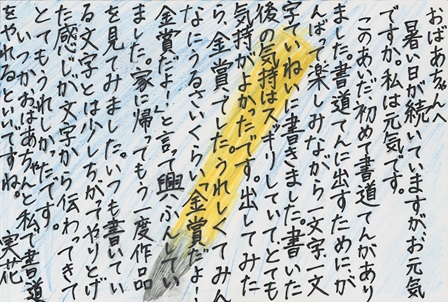 おばあちゃんへ
暑い日が続いていますが、お元気
ですか。私は元気です。
このあいだ初めて書道てんがあり
ました。書道てんに出すためにが
んばって楽しみながら一文字一文
字ていねいに書きました。書いた
後の気持はスッキリしていて、とても
気持がよかったです。出してみた
ら、金賞でした。うれしくてみん
なにうるさいくらい「金賞だよ！
金賞だよ！」と言って興ふんしてい
ました。家に帰ってもう一度作品
を見てみました。いつも書いてい
る文字とは少しちがってやりとげ
た感じが文字から伝わってきて
とてもうれしかったです。
いつかおばあちゃんと私で書道
をやれるといいですね。
実花